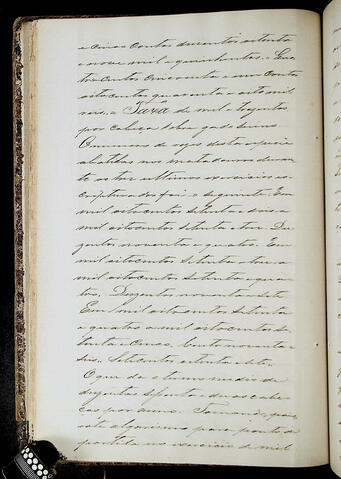 e cinco contos duzentos setenta
e nove mil e quinhentos. e Qua
trecentos cincoenta e um contos
oitocentos quarenta e oito mil
reis, a Taxa de mil e duzentos
por cabeça sobre gado
O numero de rezes desta especie
abatidas nos matadouros duran
te os tres ultimos exercicios es
foi o seguinte: Em
mil oitocentos setenta e dois a
mil oitocentos setenta e tres. Du
zentos noventa e quatro. Em
mil oitocentos setenta e tres a
mil oitocentos setenta e qua
tro. Duzentos noventa e sete
Em mil oitocentos setenta
e quatro a mil oitocentos se
tenta e cinco. Cento noventa e
seis. Setecentos e oitenta e sete.
O que dá o termo medio de
duzentas sessenta e duas cabe
ças por anno. Tomando, pois,
este algarismo para ponto de
partida no exercicio de mil